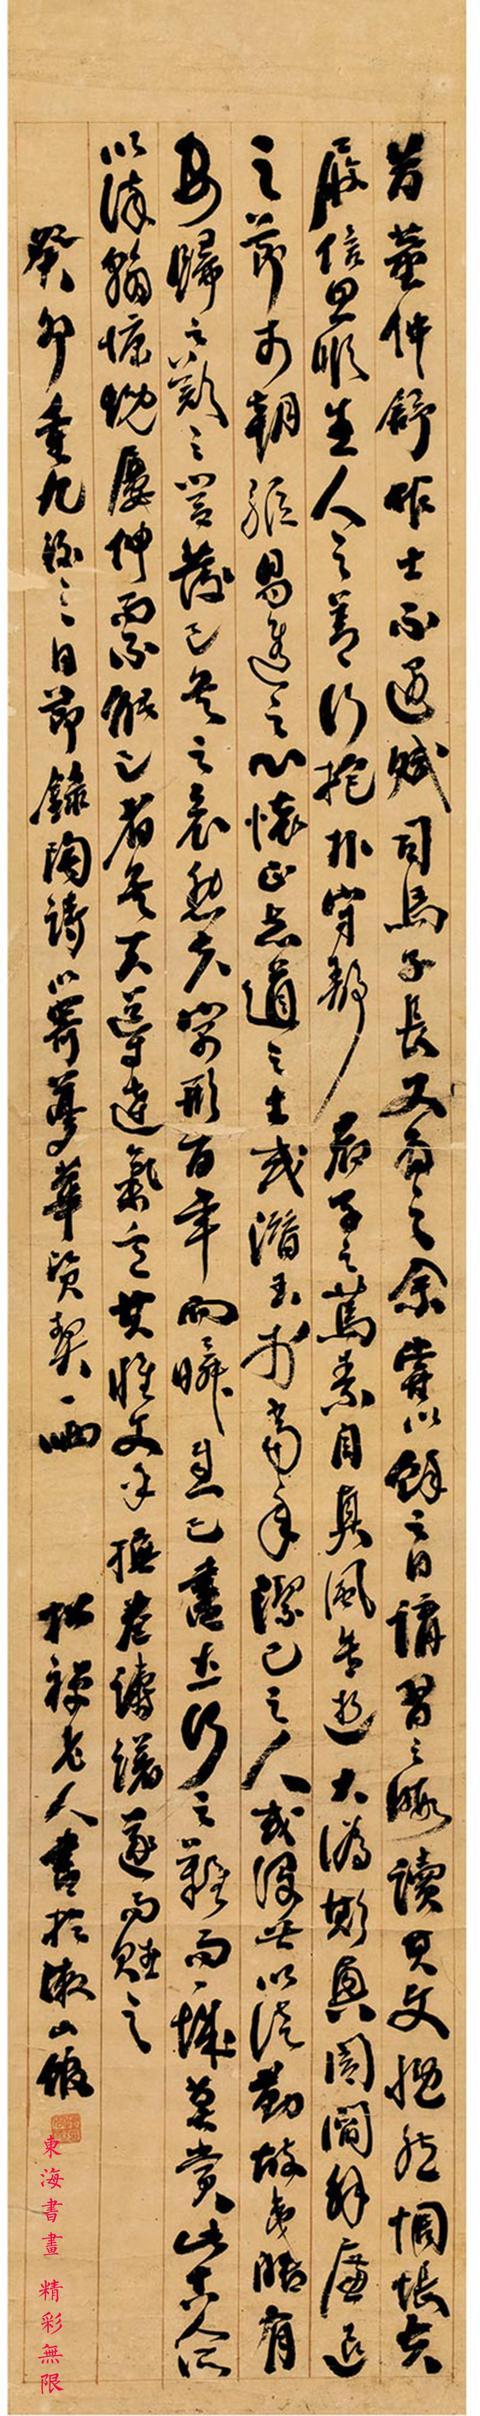 昔董仲舒作士不遇賦司馬子長又為之余嘗以餘之日講習之暇讀其文慨然惆悵夫
履信思順生人之善行抱朴守靜君子之篤素自真風告逝大偽斯興閭閻解廉退
之節市朝驅易進之心懷正志道之士或潛玉於當年潔己之人或沒世以徒勤故夷皓有
安歸之歎三閭發已矣之哀悲夫寓形百年而瞬息已盡立行之難而一城莫賞此古人所
以染翰慷慨屢伸而不能已者矣夫導達氣意其惟文乎撫卷躊躇遂而賦之
癸卯重九後三日節錄陶詩以寄夢華賢契一哂
松禪老人書於 山館
東海書畫 精彩無限